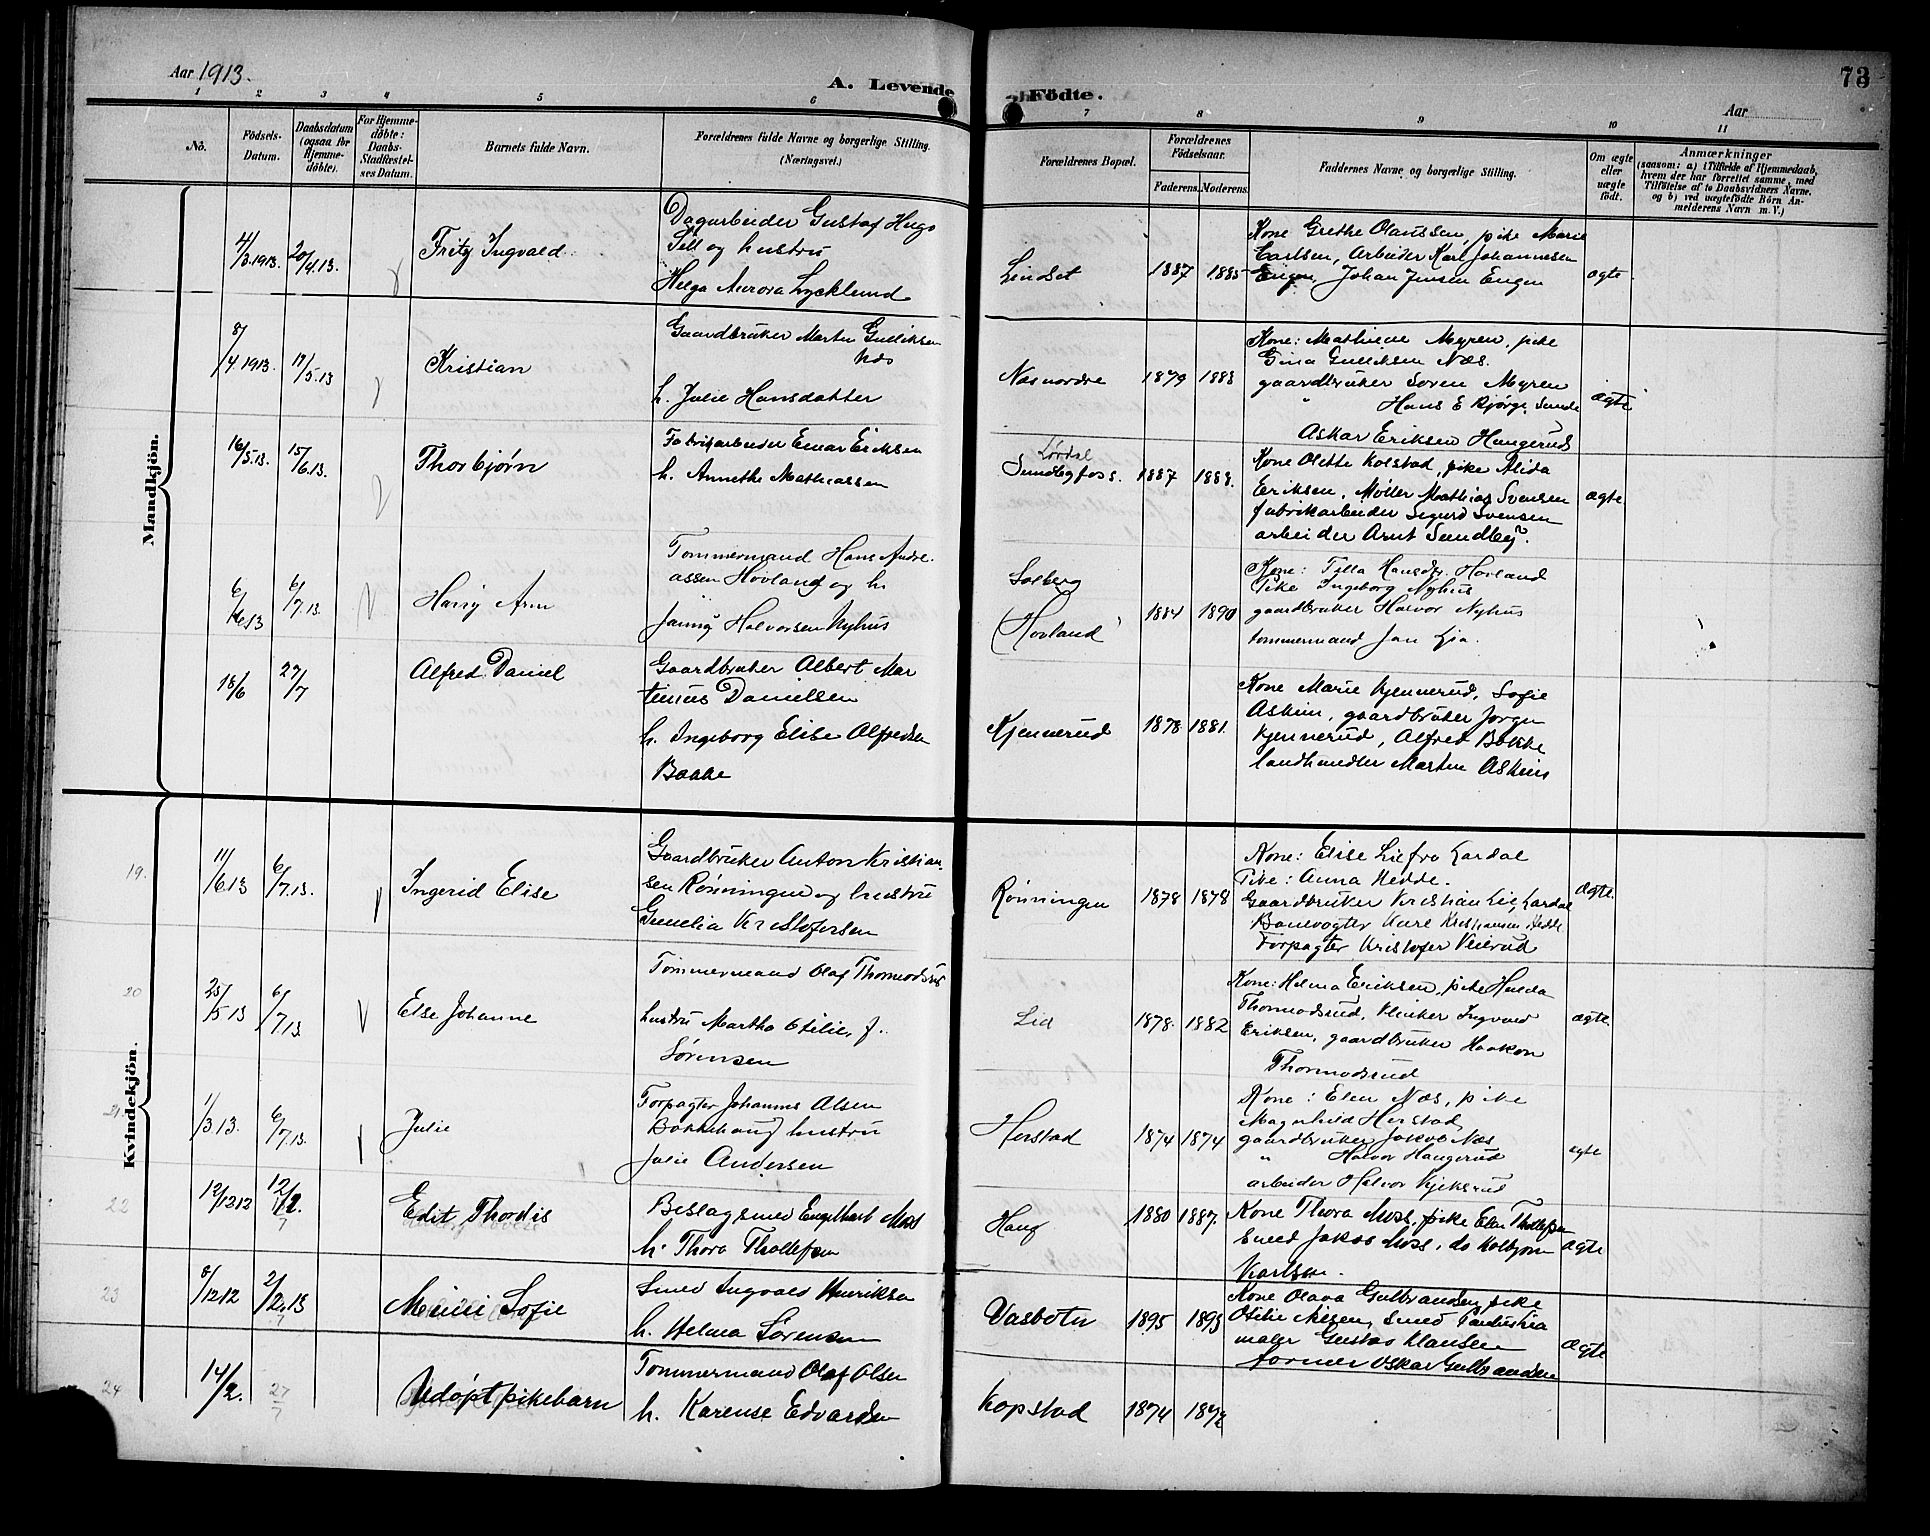 Aar 1913.
A. Levende Födte.
73
Aar
1 2 3 4 5 6 7 8 9 10 11
No.
Födsels-Datum.
Daabsdatum (ogsaa for Hjemmedöbte).
For Hjemmedöbte: Daabs-Stadfæstelses Datum.
Barnets fulde Navn.
Forældrenes fulde Navne og borgerlige Stilling. (Næringsvei.)
Forældrenes Bopæl.
Forældrenes Födselsaar.
Faderens. Moderens.
Faddernes Navne og borgerlige Stilling.
Om ægte eller uægte födt.
Anmærkninger
(saasom: a) i Tilfælde af Hjemmedaab, hvem der har forrettet samme, med Tilföielse af to Daabsvidners Navne, og b) ved uægtefödte Börn Anmelderens Navn m. V.)
Mandkjön.
4/3.1913. 20/4.13. Fritz Ingvald
Dagarbeider Gustaf Hugo
Sell og hustru
Helga Aurora Lycklund
Lindset 1887 1885
Kone Grethe Olaussen, pike Marie
Carlsen, Arbeider Karl Johannesen
Engen, Johan Jensen Engen
ægte
8/4 1913. 17/5.13 Kristian
Gaardbruker Martin Gulliksen
Næs
h. Julie Hansdatter
Næs nordre 1879 1883
Kone: Mathilde Myren, pike
Gina Gulliksen Næs.
gaardbruker Soren Myren
" Hans E Bjørge, Sunde
Askar Eriksen Haugerud
ægte
16/5.13. 15/6.13. Thorbjørn
Fabrikarbeider Einar Eriksen
h. Annethe Mathiassen
Lørdal
Sundbyfoss. 1887 1888.
Kone Olette Kolstad, pike Alida
Eriksen, Møller Mathias Svensen
fabrikarbeider Sigurd Svensen
arbeider Arnt Sundby.
ægte
6/6 13 6/7.13. Harry Arn
Tømmermand Hans Andreassen Hovland og h.
Jenny Halvorsen Nyhus
Solberg
(Hovland) 1884 1890
Kone: Tilla Hansdr. Hovland
Pike Ingeborg Nyhus
gaardbruker Halvor Nyhus
tømmermand Jan Lia.
18/6 27/7 Alfred Daniel
Gaardbruker Albert Martinius Danielsen
h. Ingeborg Elise Alfredsen
Bakke
Kjennerud 1878 1881.
Kone Marie Kjennerud, Sofie
Askim, gaardbruker Jørgen
Kjennerud, Alfred Bakke
landhandler Martin Askim
Kvindekjön.
19. 11/6.13 6/7.13. Ingerid Elise
Gaardbruker Anton Kristiansen Rønningen og hustru
Gunelia Kristofersen
Rønningen 1878 1878
Kone: Elise Lie fra Lardal
Pike: Anna Hedde.
Gaardbruker Kristian Lie, Lardal
Banevogter Karl Kristiansen Hedde
Forpagter Kristofer Veierud
ægte.
20 25/5 13 6/7 13 Else Johanne
Tømmermand Olaf Thormodsrud
hustru Martha Otilie, f.
Sørensen
Lid 1878. 1882
Kone: Helma Eriksen, pike Hulda
Thormodsrud, Ingvald
Eriksen, gaardbruker Haakon
Thormodsrud
ægte.
21. 1/3 13. 6/7.13. Julie
Forpagter Johannes Olsen
Bakkehaug hustru
Julie Andersen
Herstad 1874 1874
Kone: Elen Næs, pike
Magnhild Herstad
gaardbruker Jakob Næs
" Halvor Haugerud
arbeider Halvor Kjeksrud
ægte
22 12/12 12 12/1. Edit Thordis
Beslagsmed Engelbart Moss
h. Thora Thollefsen
Haug 1880 1887.
Kone Thora Moss, pike Elen Thollefsen
Smed Jakob Moss, do Kolbjørn
Karlsen.
ægte
23 8/12 12 2/2.13 Sofie
Smed Ingvald Henriksen
h. Helma Sørensen
Vasboten 1895 1893
Kone Olava Gulbrandsen, pike
Otilie Nilsen, Smed
maler Gustav Klausen
former Oskar Gulbrandsen
ægte
24 14/2. 27/7 Udøpt pikebarn
Tømmermand Olaf Olsen
h. Karense Edvardsen
Kopstad 1874